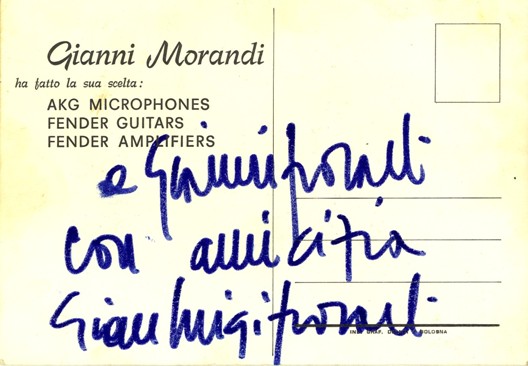 Gianni Morandi
ha fatto la sua scelta:
AKG MICROPHONES
FENDER GUITARS
FENDER AMPLIFIERS
a Gianni
con amicizia
Gian Luigi
GRAF. BOLOGNA